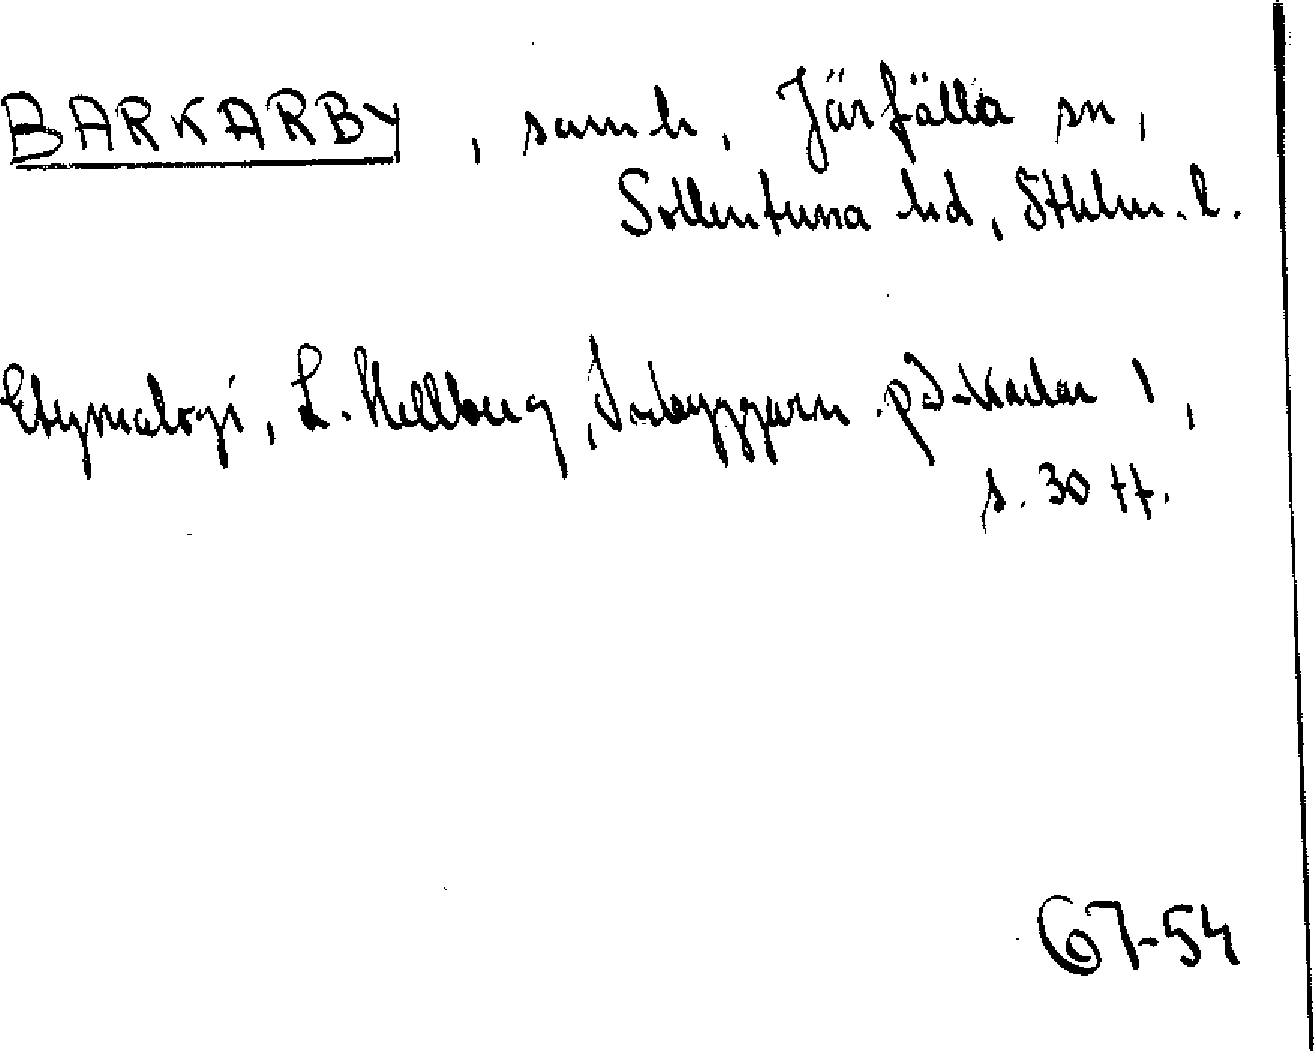 BARKARBY, samh, Järfälla sn,
Sollentuna hd, Sthlm. l.
Etymologi, L. Hellberg, Inbyggarn. på -karlar 1,
s. 30 ff.
67-54